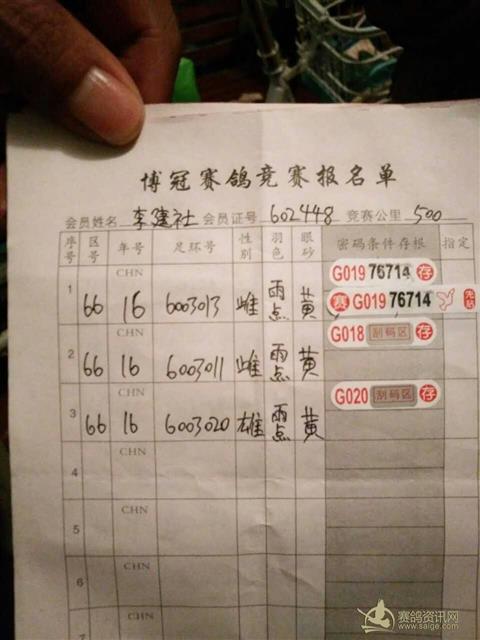 博冠赛鸽竞赛报名单
会员姓名 李建社 会员证号 602448 竞赛公里 500
序号 区号 年号 足环号 性别 羽色 眼砂 密码条件存根 指定
1 CHN G019 76714 存
66 16 6003013 雌 雨点 黄 赛 G019 76714
2 CHN G018 刮码区 存
66 16 6003011 雌 雨点 黄
3 CHN G020 刮码区 存
66 16 6003020 雄 雨点 黄
4 CHN
5 CHN
6 CHN
7 CHN
赛鸽资讯网
www.saige.com